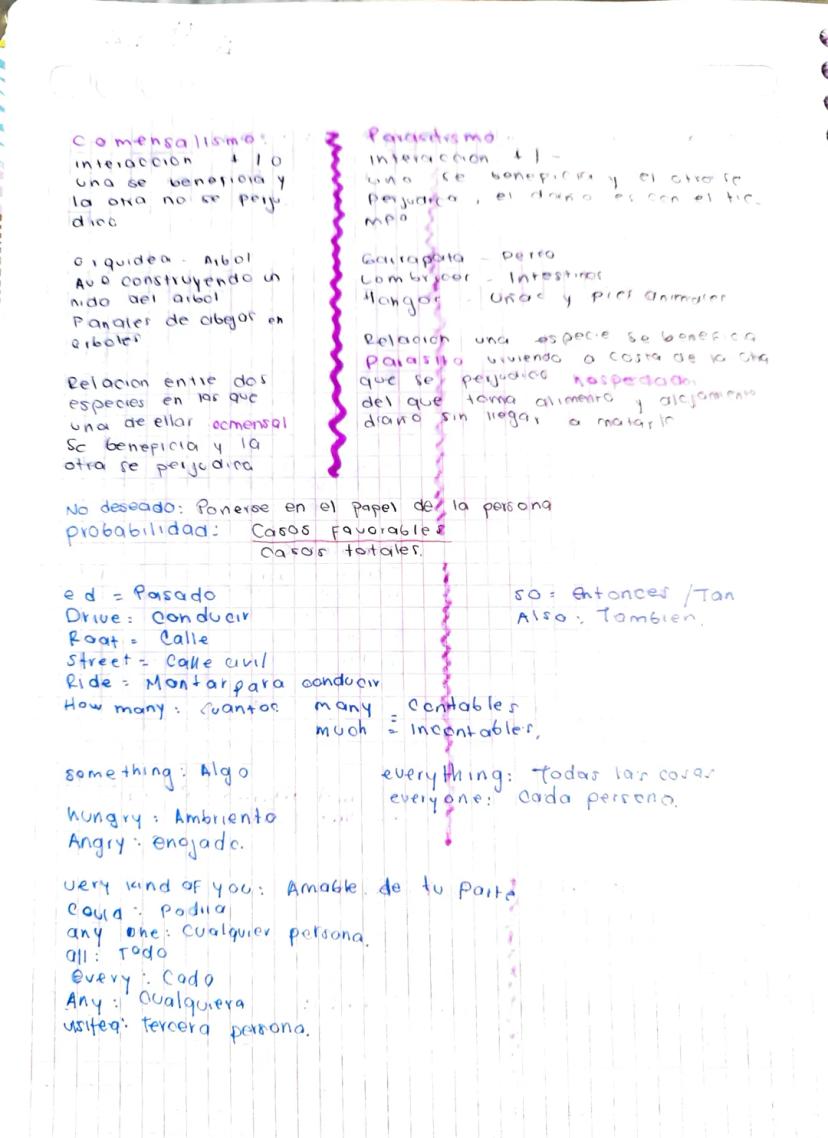 Comensalismo:
interaccion + 1 0
una se beneficia y
la otra no se perju
dica
Orquidea - Arbol
Ave construyendo un
nido del arbol
Panales de abejas en
arboles
Relacion entre dos
especies en las que
una de ellas comensal
Se beneficia y la
otra se perjudica
Parasitismo
Interaccion + 1 -
uno se beneficia y el otro se
perjudica, el daño es con el tie-
mpo
Garrapata - perro
Lombrices - Intestinos
Hongos - Uñas y pies animales
Relacion una especie se benefica
Parasito viviendo a costa de la otra
que se perjudica hospedador
del que toma alimento y alojamiento
diario sin llegar a matarlo
No deseado: Ponerse en el papel de la persona
probabilidad: Casos Favorables
Casos totales.
ed = Pasado
Drive: conducir
Roat = Calle
Street = Calle civil
Ride = Montar para conducir
How many: cuantos many = Contables
much = incontables.
so = Entonces / Tan
Also: Tambien.
something: Algo
everything: Todas las cosas
everyone: Cada persona.
hungry: Ambriento
Angry: enojado.
very kind of you: Amable de tu parte
Could: Podria
any one: Cualquier persona.
all: Todo
Every: Cada
Any: Cualquiera
tercera persona.